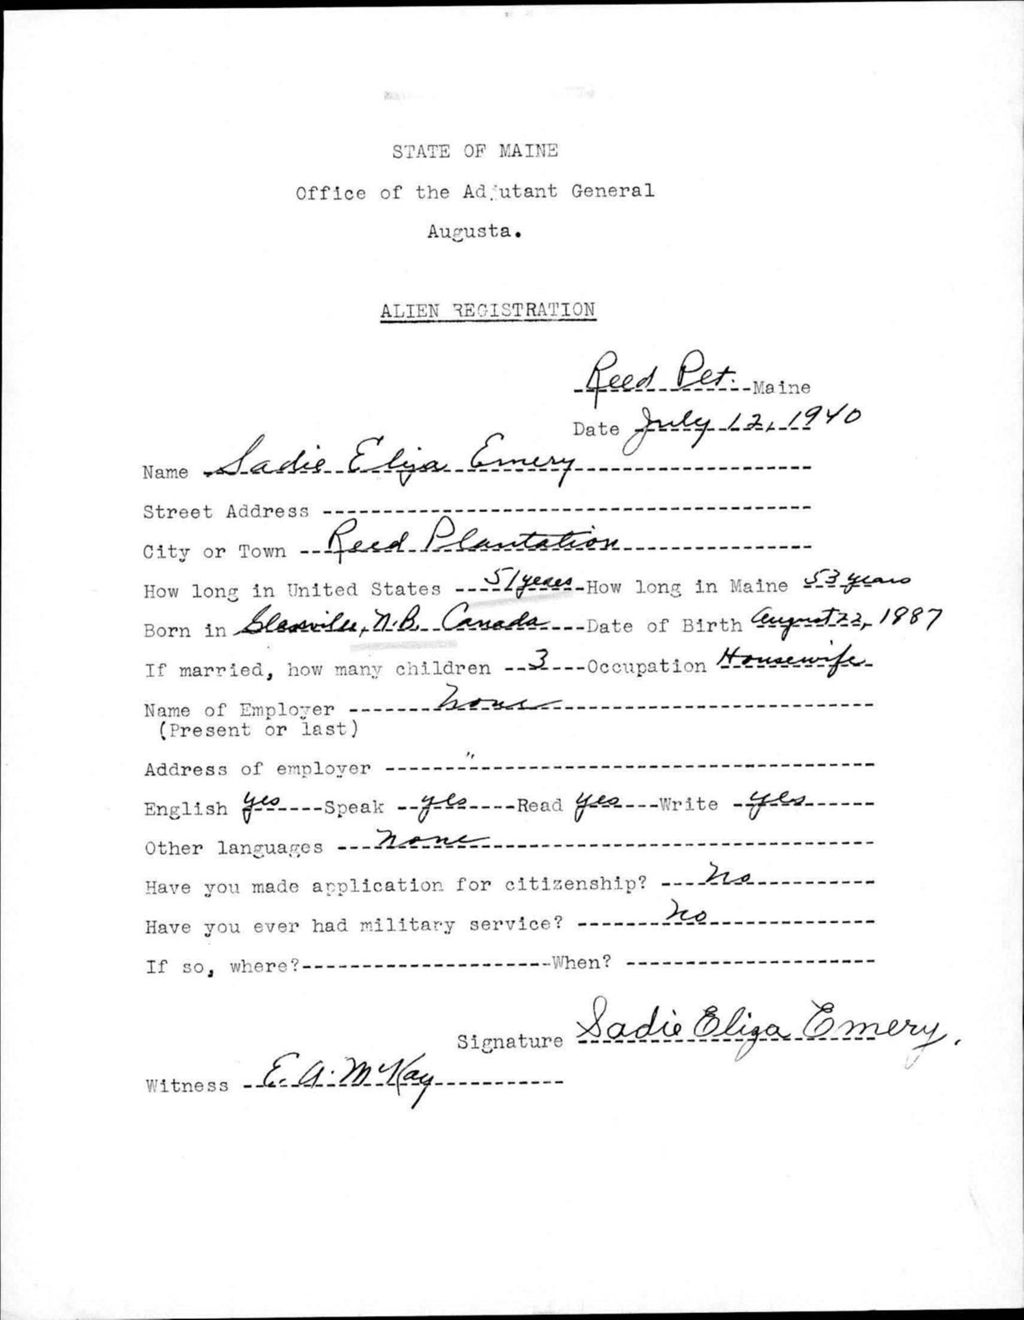 STATE OF MAINE
Office of the Adjutant General
Augusta.
ALIEN REGISTRATION
Reed Plt. Maine
Date July 12, 1940
Name Sadie Eliza Emery
Street Address
City or Town Reed Plantation
How long in United States 51 years How long in Maine 53 years
Born in N.B. Canada Date of Birth August 22, 1987
If married, how many children 3 Occupation Housewife
Name of Employer none
(Present or last)
Address of employer "
English yes Speak yes Read yes Write yes
Other languages none
Have you made application for citizenship? No
Have you ever had military service? no
If so, where? When?
Signature Sadie Eliza Emery.
Witness E. A. McKay